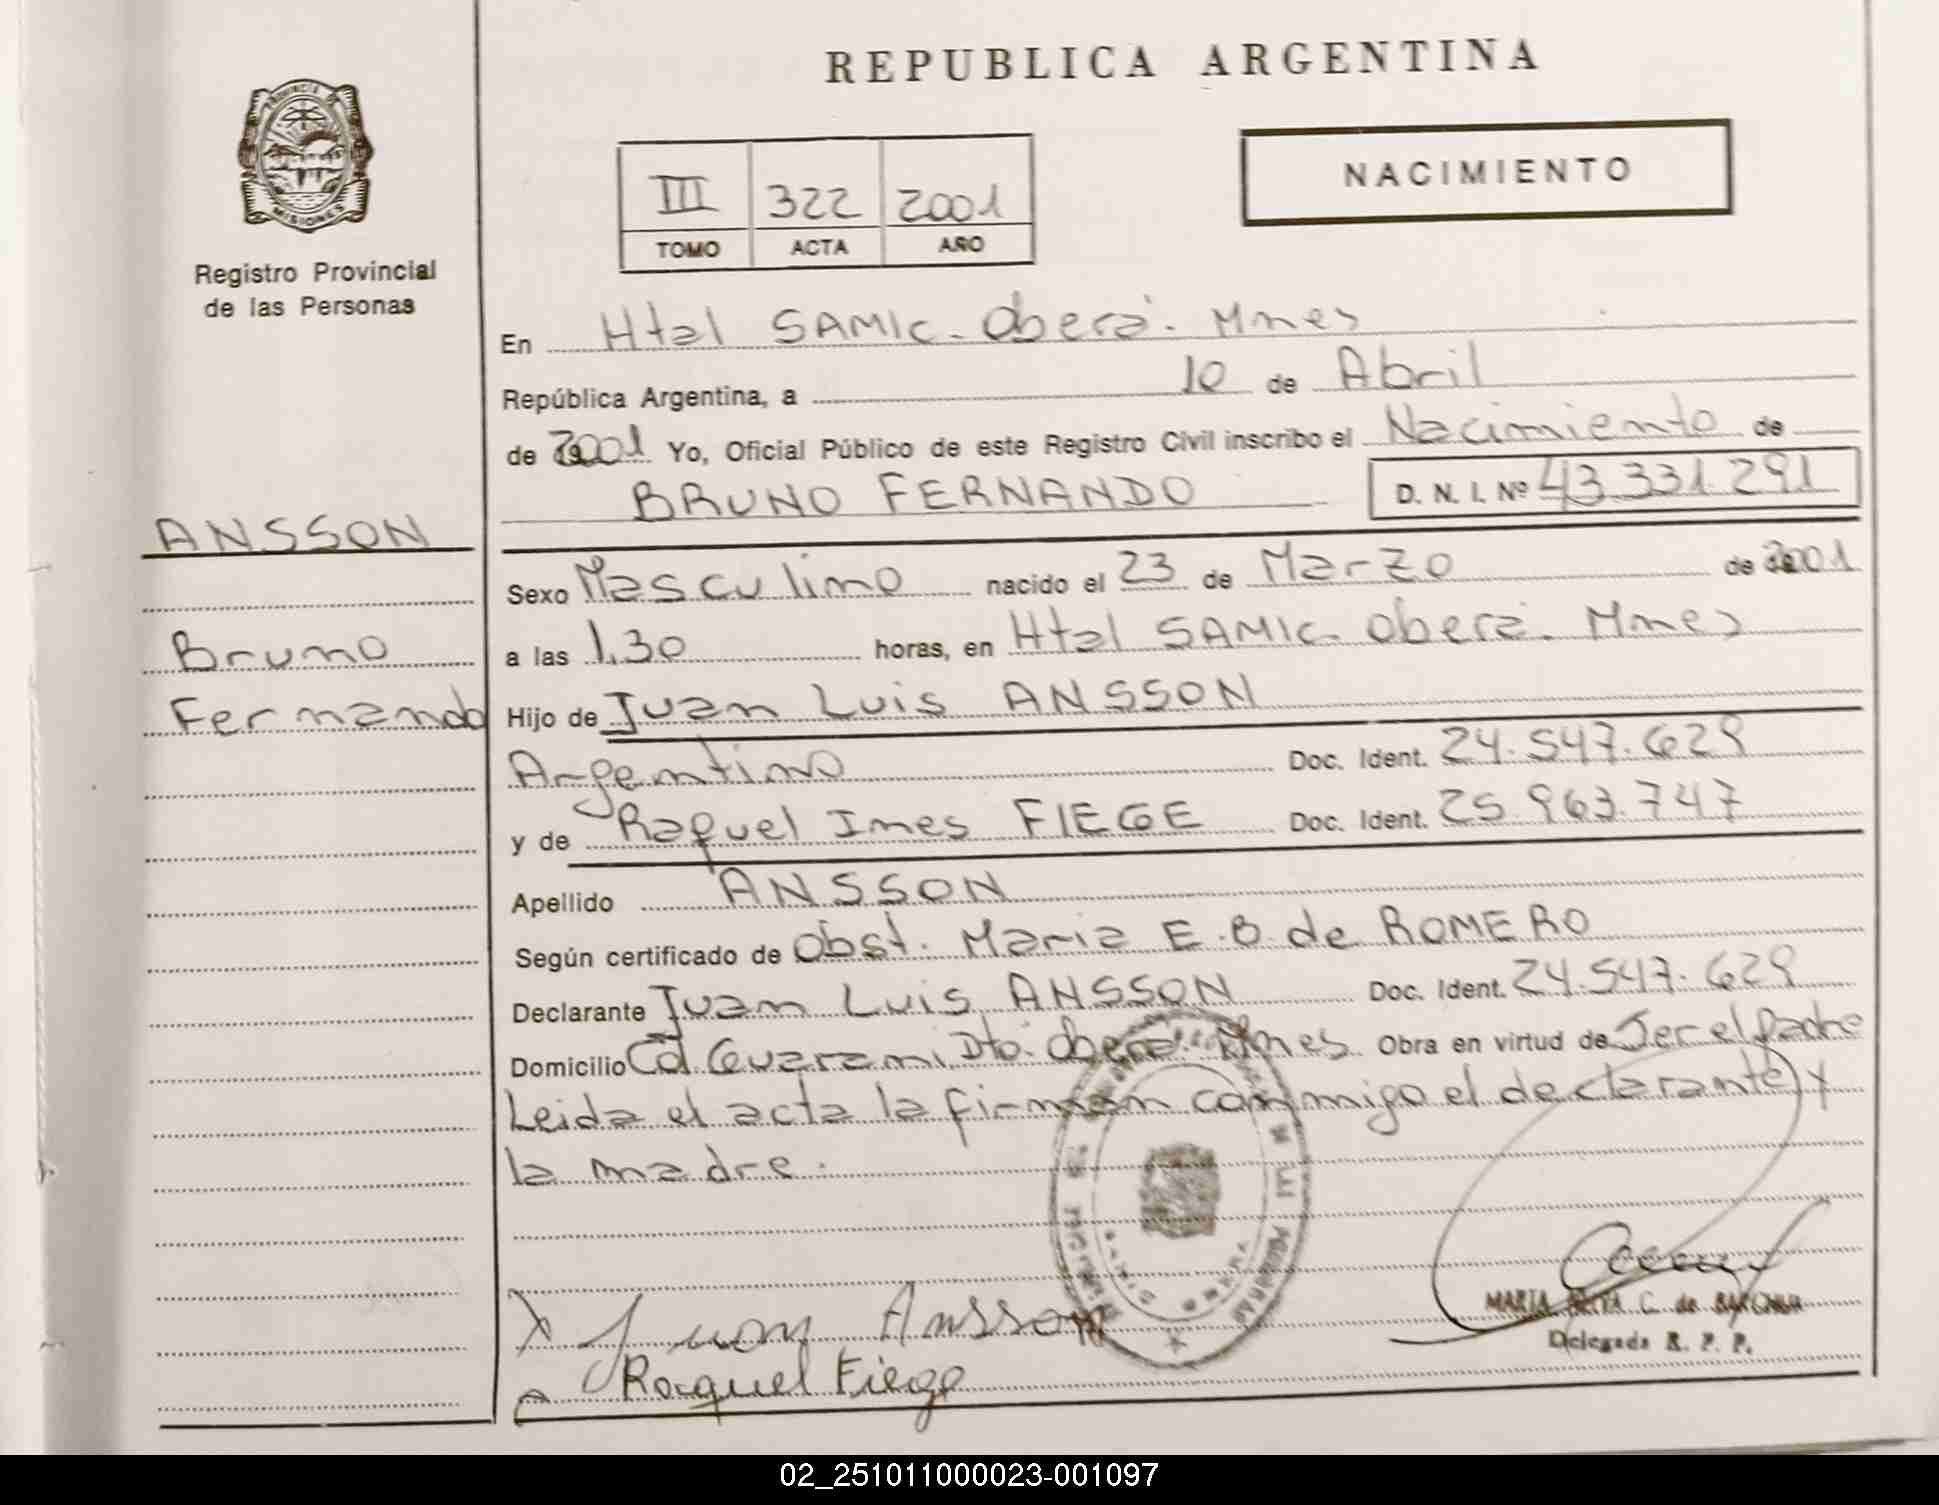 REPUBLICA ARGENTINA
PROVINCIA DE
MISIONES
Registro Provincial
de las Personas
NACIMIENTO
III 322 2001
TOMO ACTA AÑO
En Htal SAMIC. Oberá. Mnes
República Argentina, a 10 de Abril
de 2001 Yo, Oficial Público de este Registro Civil inscribo el Nacimiento de
BRUNO FERNANDO D. N. I. Nº 43.331.291
ANSSON
Bruno
Fernando
Sexo Masculino nacido el 23 de Marzo de 2001
a las 1.30 horas, en Htal SAMIC. Oberá. Mnes
Hijo de Juan Luis ANSSON
Argentino Doc. Ident. 24.547.629
y de Raquel Ines FIEGE Doc. Ident. 25.963.747
Apellido ANSSON
Según certificado de Obst. Maria E.B. de ROMERO
Declarante Juan Luis ANSSON Doc. Ident. 24.547.629
Domicilio Cd. Guarani Dto. Oberá. Mnes. Obra en virtud de Ser el Padre
Leida el acta la firman conmigo el declarante y
la madre.
X Juan Ansson
Raquel Fiege
MARIA C. de
Delegada R. P. P.
02_251011000023-001097